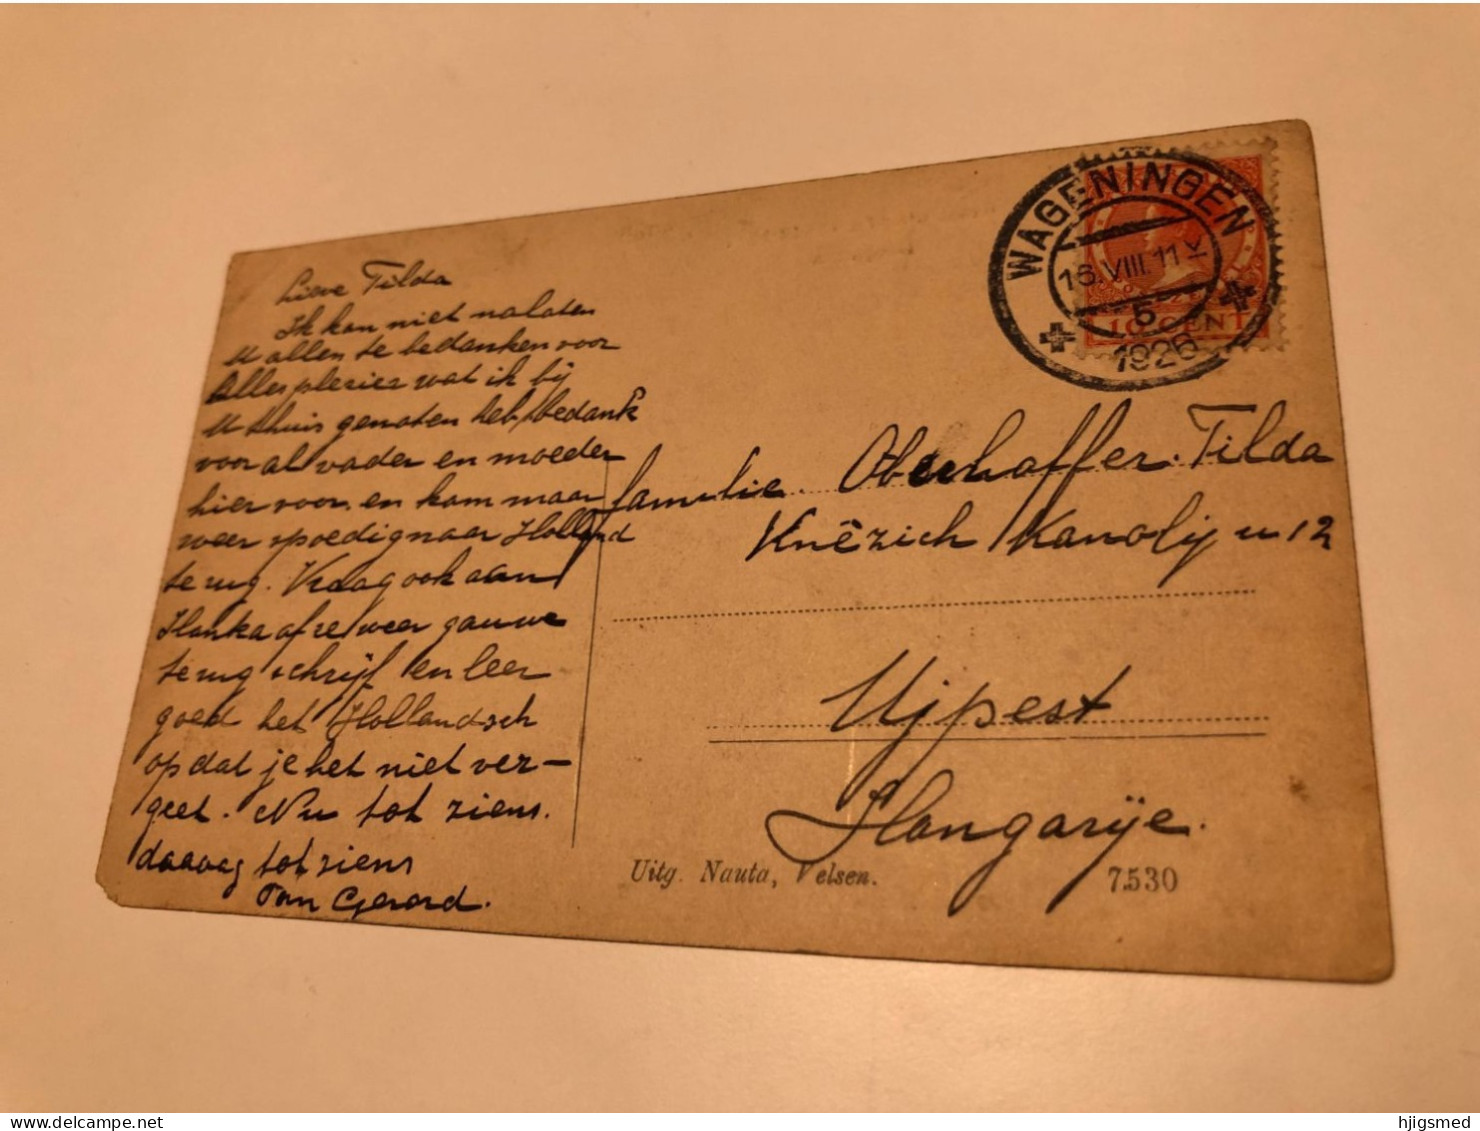 Lieve Tilda
Ik kan niet nalaten
U allen te bedanken voor
alles plezier wat ik bij
U thuis genoten heb, bedank
voor al vader en moeder
hier voor, en kom maar
weer spoedig naar Holland
terug. Vraag ook aan
Ilonka of ze weer gauw
terug schrijf en leer
goed het Hollandsch
opdat je het niet ver-
geet. Nu tot ziens.
daaag tot ziens
Van Gerard.
WAGENINGEN
16.VIII.11 V
5
1926
10 CENT
familie Oberhaffer. Tilda
Knêzich Karolij u 12
Ujpest
Hongarije.
Uitg. Nauta, Velsen.
7530
hjigsmed